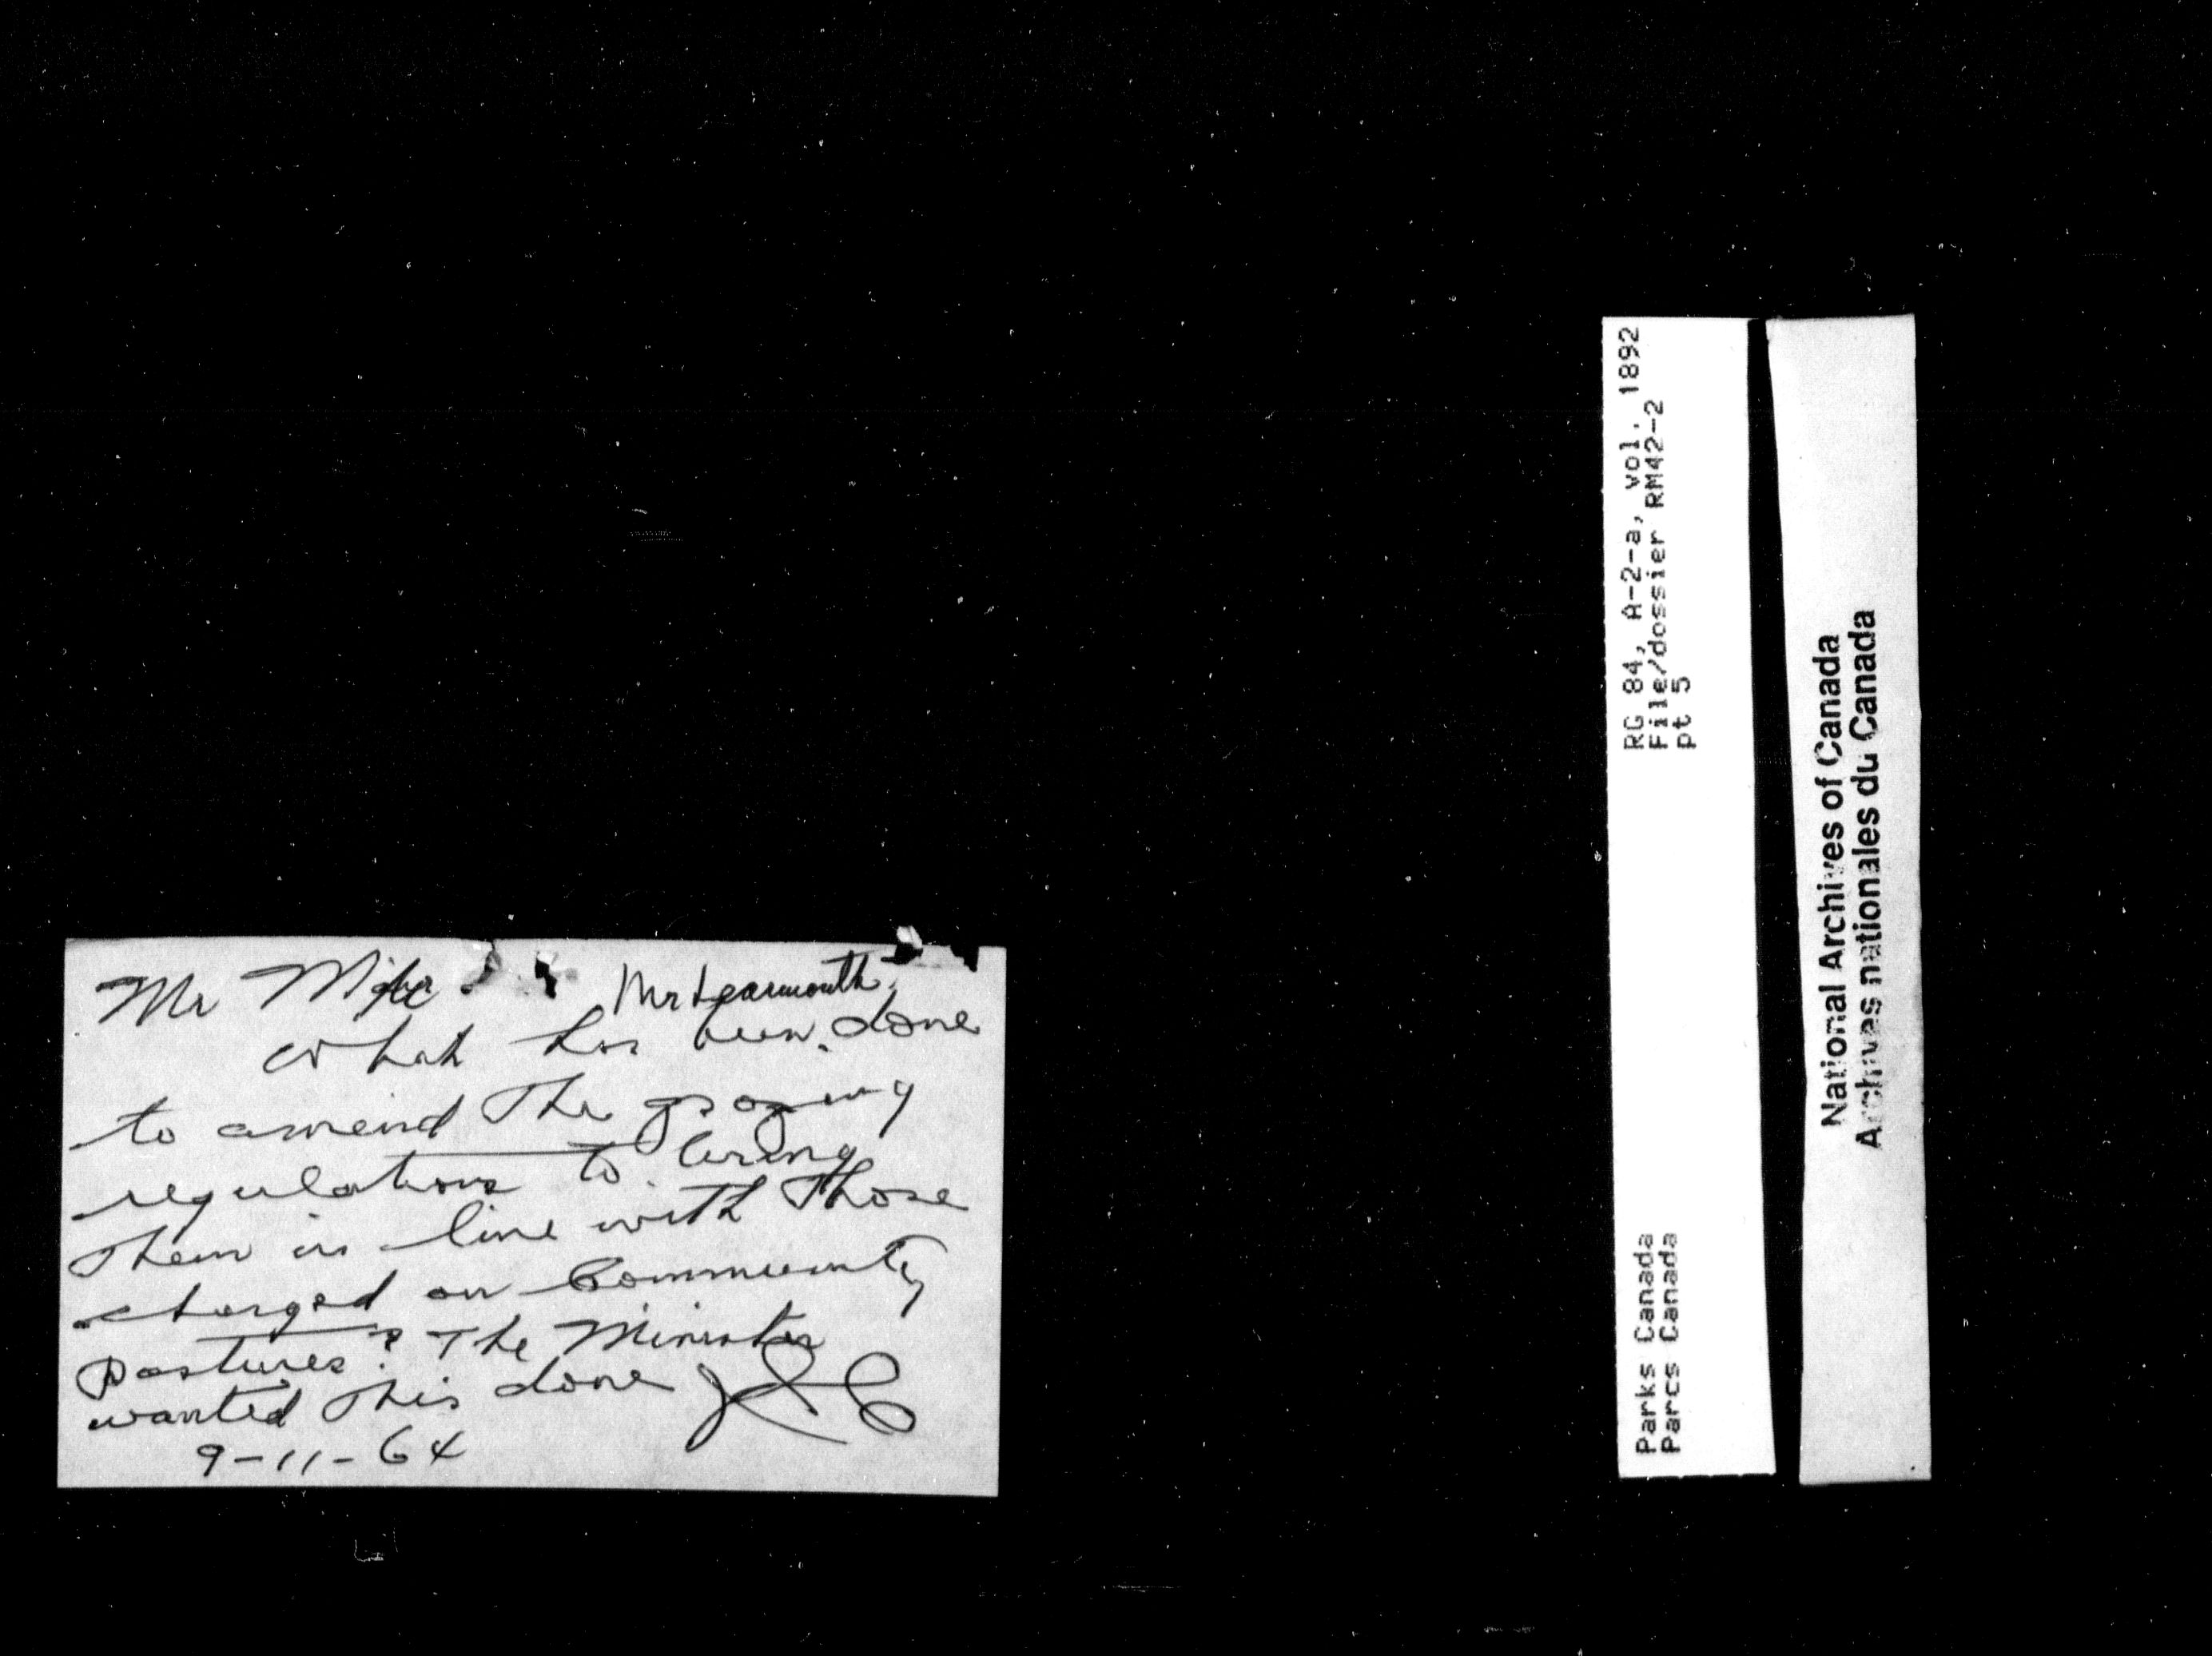 Mr Mr Learmonth.
What has been done
to amend the grazing
regulations to bring
them in line with those
charged on Community
pastures? The Minister
wanted this done
9-11-64
RG 84, A-2-a, vol. 1892
File/dossier RM42-2
pt 5
Parks Canada
Parcs Canada
National Archives of Canada
Archives nationales du Canada